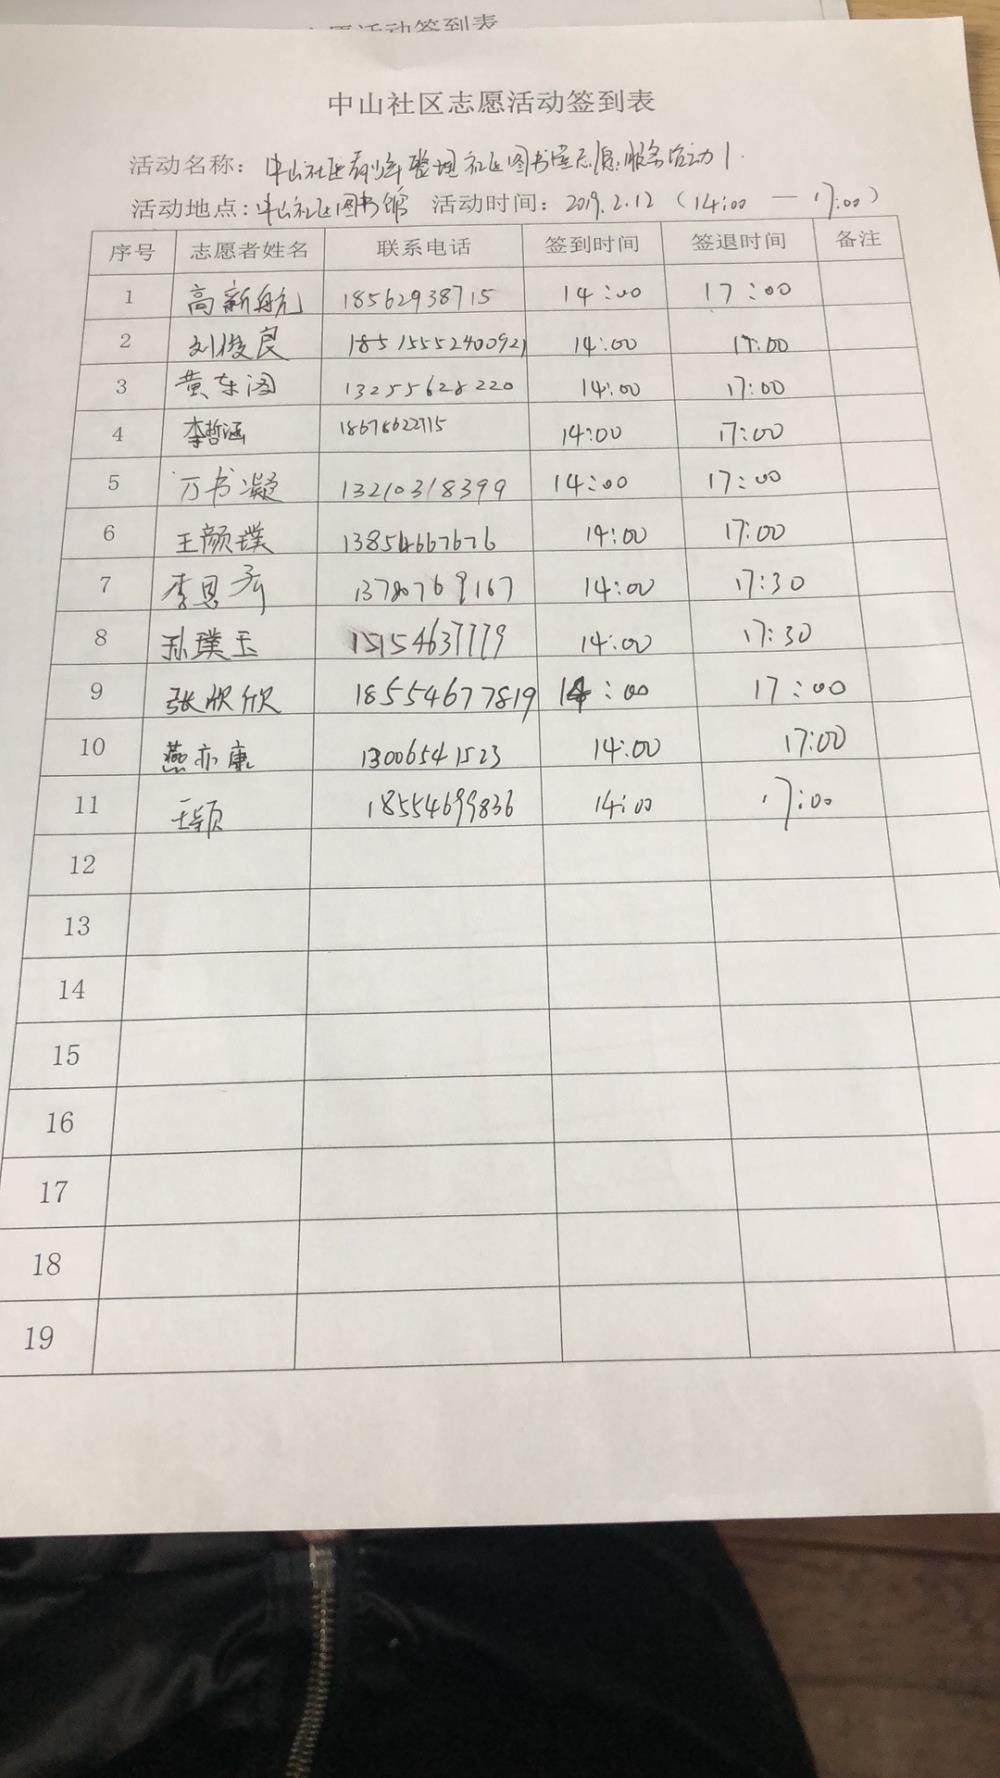 愿活动签到表
中山社区志愿活动签到表
活动名称： 中山社区青少年整理社区图书室志愿服务活动1.
活动地点：中山社区图书馆 活动时间：2019.2.12（14:00 — 17:00）
序号 志愿者姓名 联系电话 签到时间 签退时间 备注
1 高新航 18562938715 14:00 17:00
2 刘俊良 18515552400921 14:00 17:00
3 黄东阁 13255628220 14:00 17:00
4 李哲涵 18678622715 14:00 17:00
5 万书凝 13210318399 14:00 17:00
6 王颜璞 13854667676 14:00 17:00
7 李恩 13780769167 14:00 17:30
8 孙璞玉 15154637779 14:00 17:30
9 张欣 18554677819 14:00 17:00
10 燕亦康 13006541523 14:00 17:00
11 王颖 18554699836 14:00 17:00
12
13
14
15
16
17
18
19